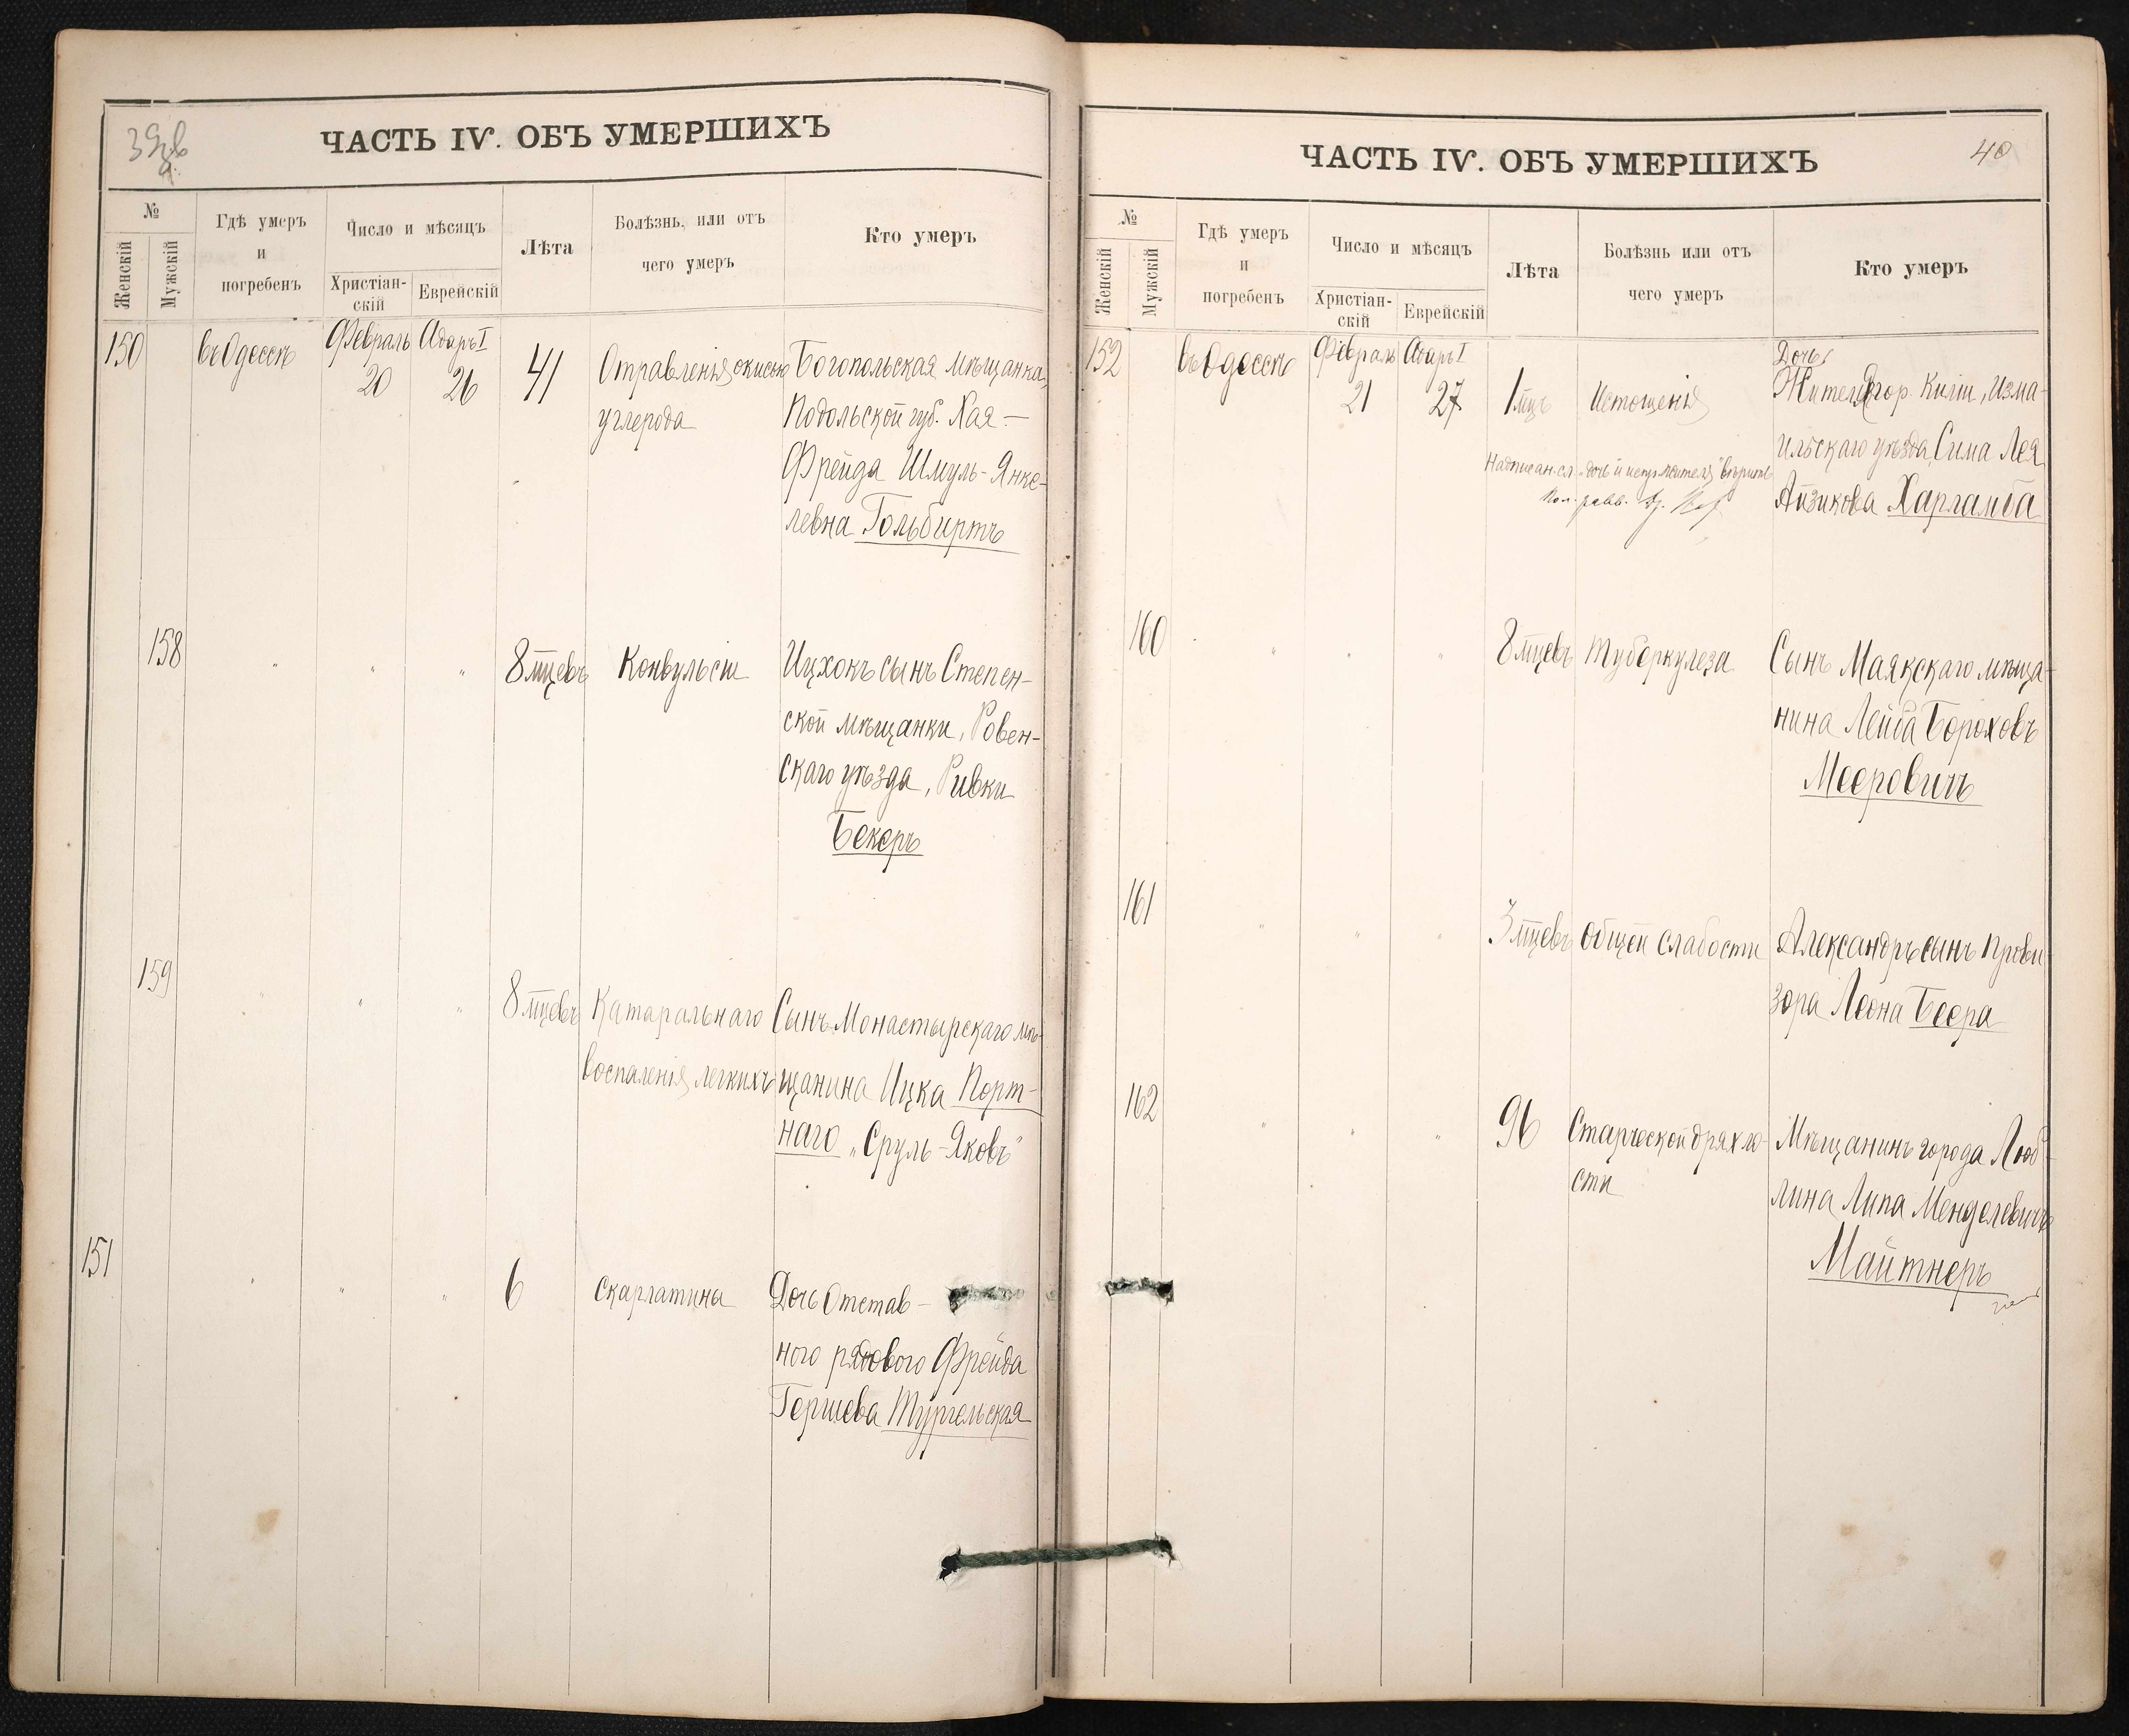 39 об
ЧАСТЬ IV. ОБЪ УМЕРШИХЪ
№
Женскій
Мужскій
Гдѣ умеръ
и
погребенъ
Число и мѣсяцъ
Христіан-
скій
Еврейскій
Лѣта
Болѣзнь, или отъ
чего умеръ
Кто умеръ
150
въ Одессѣ
Февраль
20
Адаръ I
26
41
Отравленія окисью
углерода
Богопольская мѣщанка,
Подольской губ. Хая-
Фрейда Шмуль-Янке-
левна Гольбиртъ
158
"
"
"
8 мцевъ
Конвульсіи
Ицхокъ сынъ Степен-
ской мѣщанки, Ровен-
скаго уѣзда, Ривки
Бекеръ
159
"
"
"
8 мцевъ
Катаральнаго
воспаленія легкихъ
Сынъ Монастырскаго мѣ-
щанина Ицка Порт-
наго „Сруль-Яковъ"
151
"
"
"
6
Скарлатины
Дочь Отстав-
ного рядового Фрейда
Гершева Тургельская
ЧАСТЬ IV. ОБЪ УМЕРШИХЪ
40
№
Женскій
Мужскій
Гдѣ умеръ
и
погребенъ
Число и мѣсяцъ
Христіан-
скій
Еврейскій
Лѣта
Болѣзнь или отъ
чего умеръ
Кто умеръ
152
въ Одессѣ
Февраль
21
Адаръ I
27
1 мцъ
Истощенія
Дочь
Жителя гор. Киліи, Изма-
ильскаго уѣзда, Сима Лея
Айзикова Харламба
Надписан. сл. „дочь" и испр. „жителя" вѣрить
Пом. равв.
160
"
"
"
8 мцевъ
Туберкулеза
Сынъ Маякскаго мѣща-
нина Лейба Бороховъ
Мееровичъ
161
"
"
"
3 мцевъ
Общей слабости
Александръ сынъ прови-
зора Леона Беера
162
"
"
"
96
Старческой дряхло-
сти
Мѣщанинъ города Люб-
лина Липа Менделевичъ
Майтнеръ